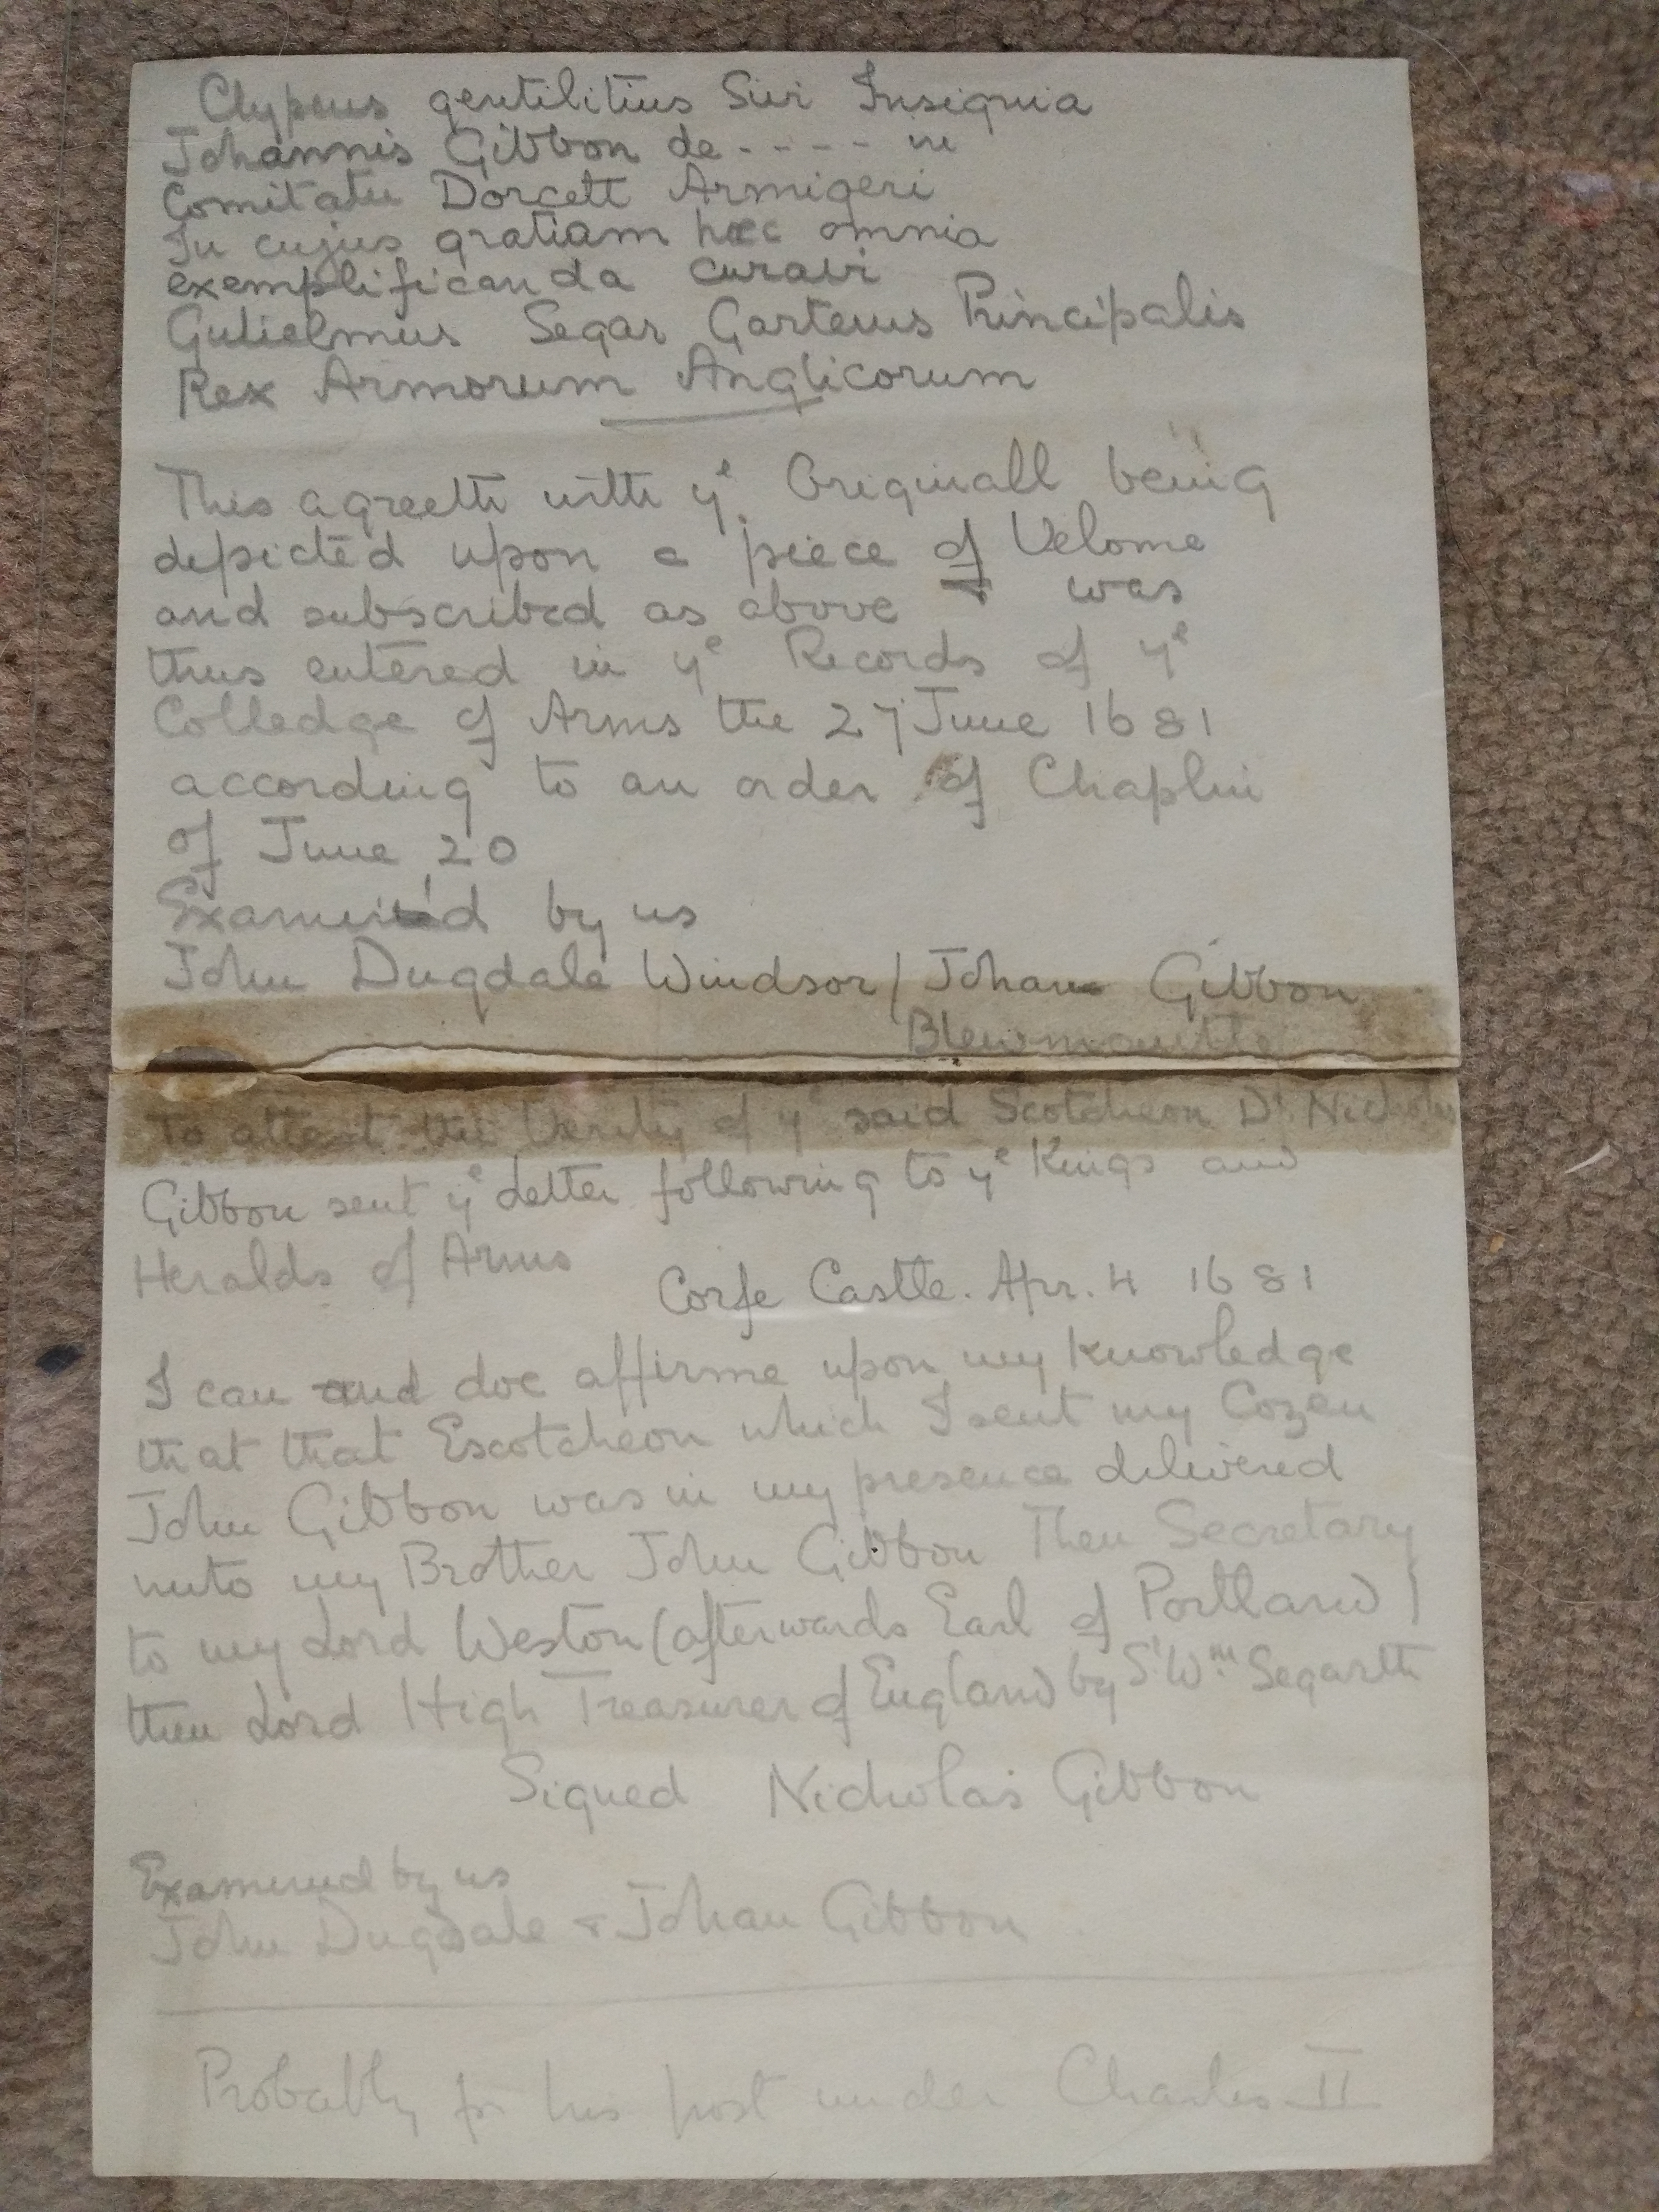 Clypeus gentilitius Sivi Insignia
Johannis Gibbon de - - - - in
Comitatu Dorcett Armigeri
In cujus gratiam hæc omnia
exemplificanda curavi
Gulielmus Segar Garterus Principalis
Rex Armorum Anglicorum
This agreeth with yᵉ Originall being
depicted upon a piece of Velome
and subscribed as above & was
thus entered in yᵉ Records of yᵉ
Colledge of Arms the 27 June 1681
according to an order of Chaplin
of June 20
Examin'd by us
John Dugdale Windsor / Johan Gibbon
Blewmantle
To attest the Verity of yᵉ said Scotcheon Dʳ Nicholas
Gibbon sent yᵉ Letter following to yᵉ Kings and
Heralds of Arms
Corfe Castle. Apr. 4 1681
I can and doe affirme upon my Knowledge
that that Escotcheon which I sent my Cozen
John Gibbon was in my presence delivered
unto my Brother John Gibbon Then Secretary
to my Lord Weston (afterwards Earl of Portland)
then Lord High Treasurer of England by Sʳ Wᵐ Segar
Signed Nicholas Gibbon
Examined by us
John Dugdale & Johan Gibbon
Probably for his post under Charles II